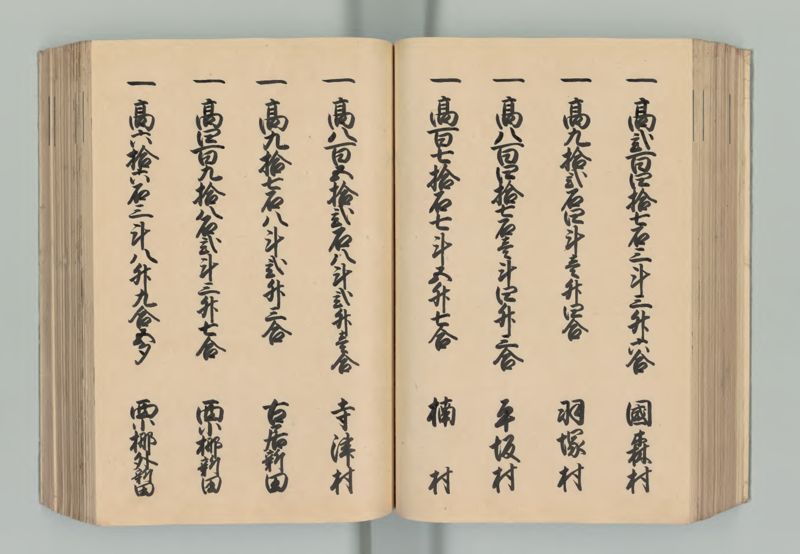 一 高弐百四拾七石三斗三升六合 國森村
一 高九拾弐石四斗壱升四合 羽塚村
一 高八百四拾七石壱斗四升三合 平坂村
一 高百七拾石七斗五升七合 楠村
一 高八百五拾弐石八斗弐升壱合 寺津村
一 高九拾七石八斗弐升三合 古居新田
一 高四百九拾八石弐斗三升七合 西小梛新田
一 高六拾六石三斗八升九合五夕 西小梛外新田